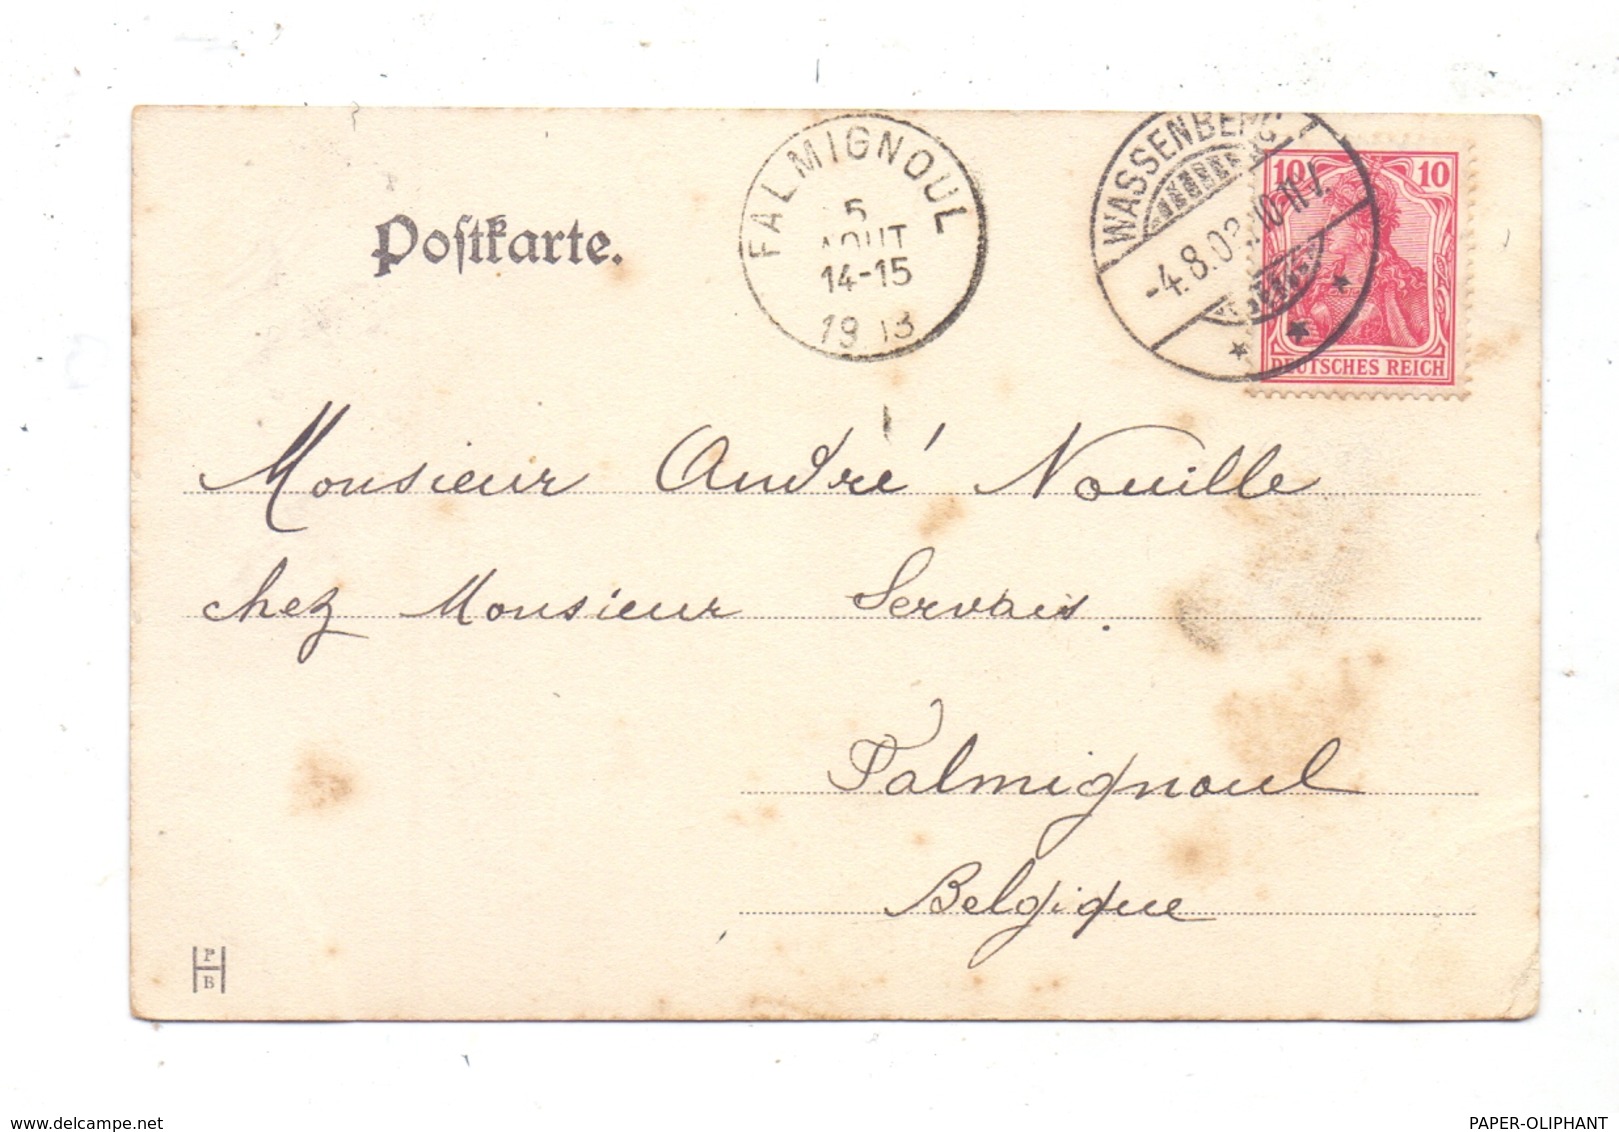 Postkarte.
FALMIGNOUL
5
AOUT
14-15
WASSENBERG
-4.8.03.10-11V.
10 10
DEUTSCHES REICH
Monsieur André Nouille
chez Monsieur Servais.
Falmignoul
Belgique
P
H
B
www.delcampe.net
PAPER-OLIPHANT